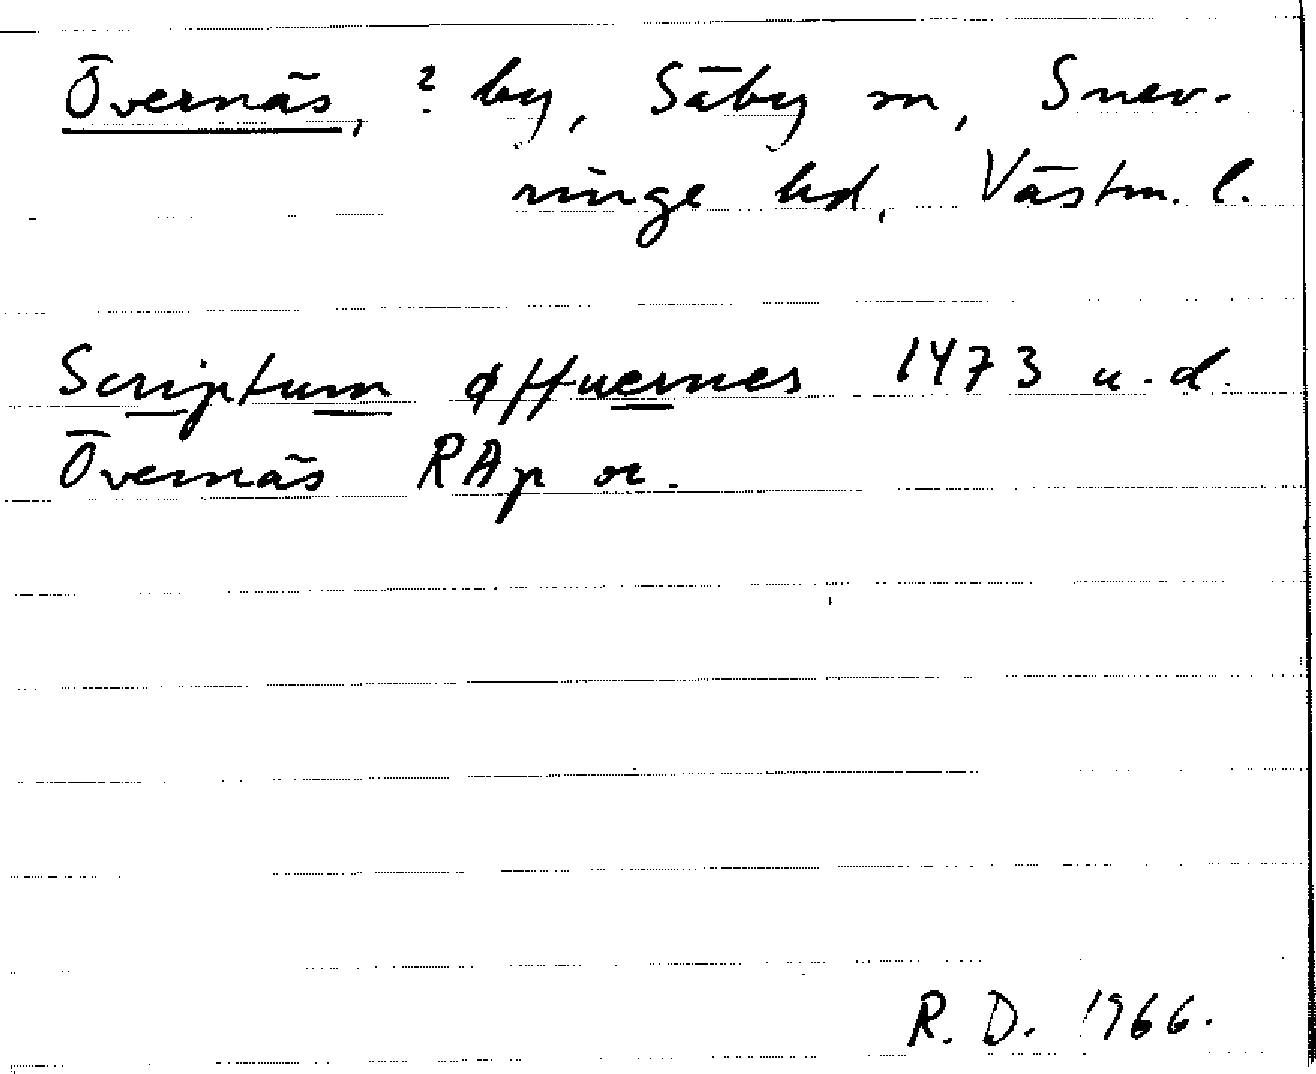 Övernäs, ? by, Säby sn, Snev-
ringe hd, Västm. l.
Scriptum øffuernes 1473 u.d.
Övernäs RAp or.
R. D. 1966.